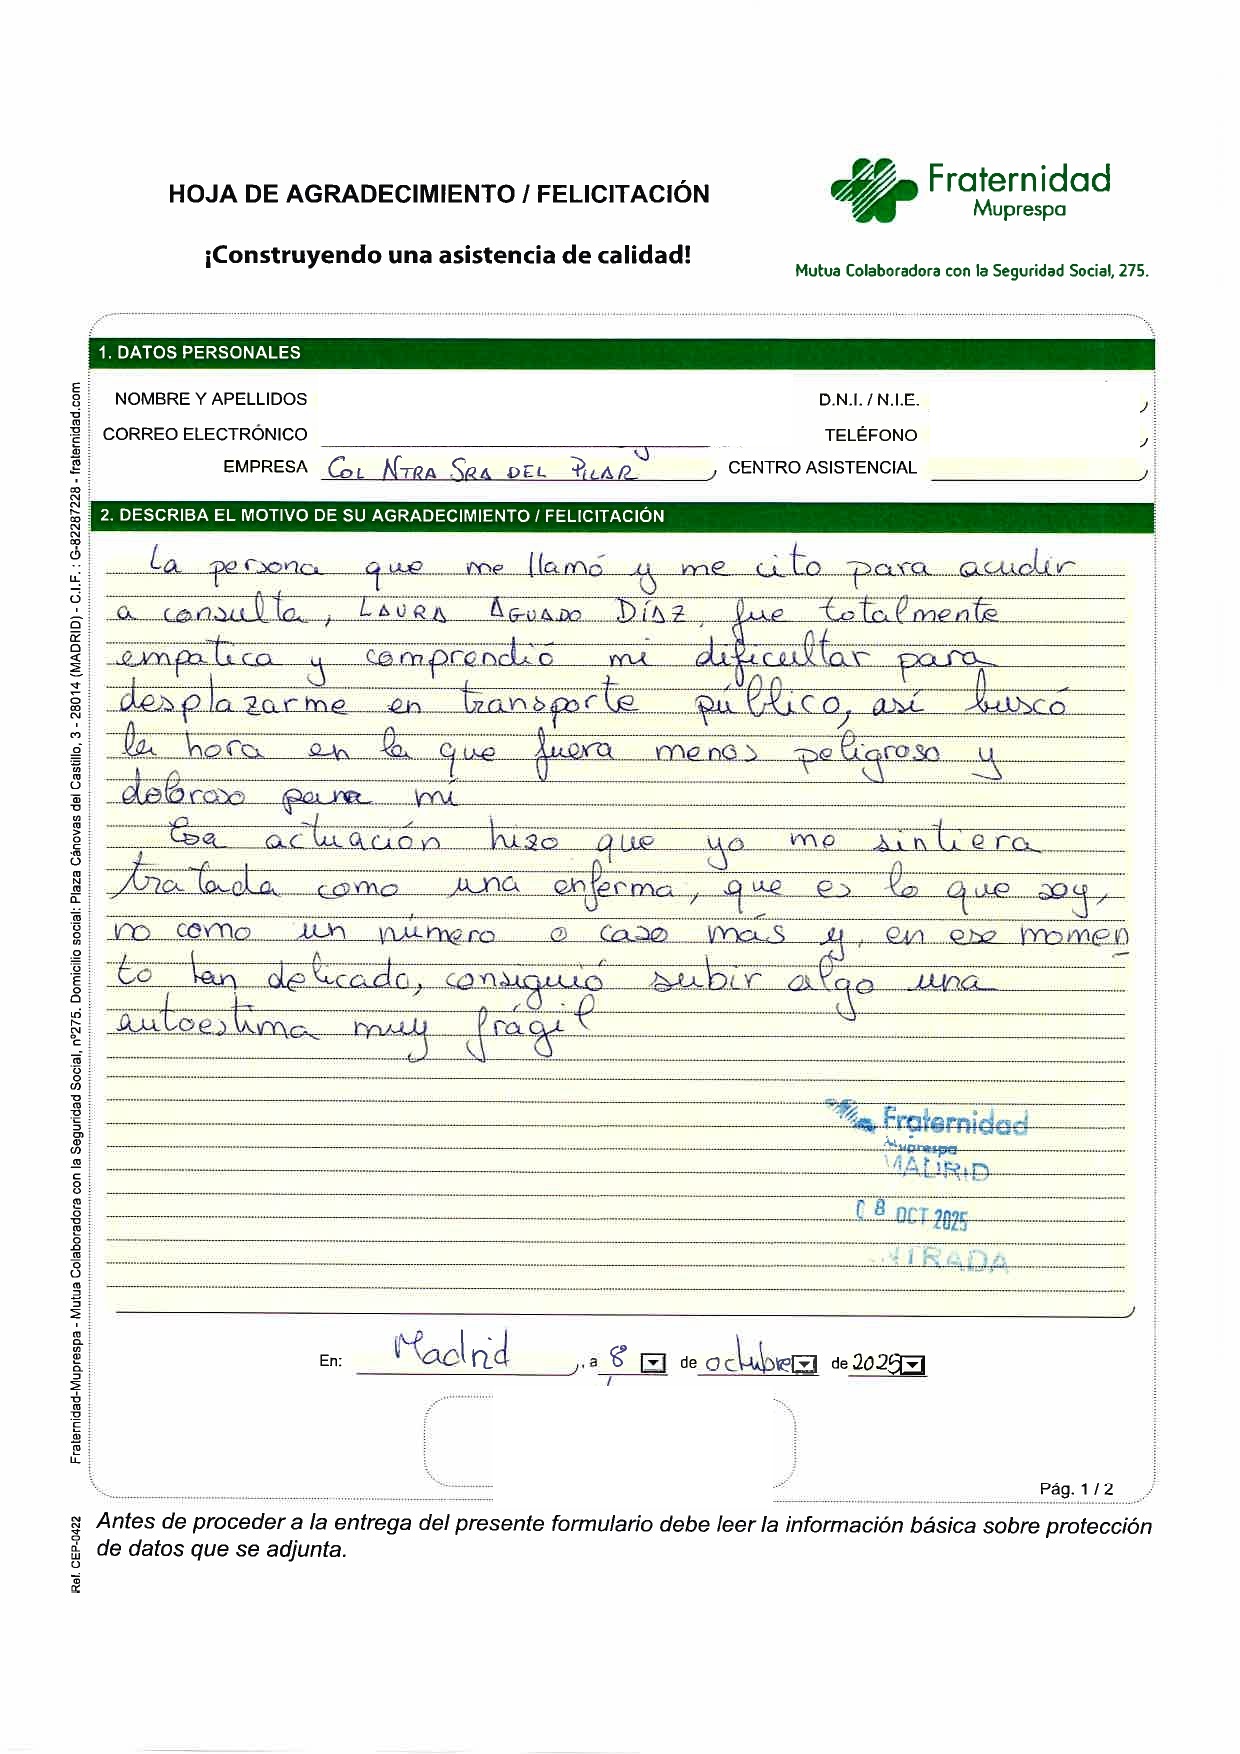 HOJA DE AGRADECIMIENTO / FELICITACIÓN
¡Construyendo una asistencia de calidad!
Fraternidad
Muprespa
Mutua Colaboradora con la Seguridad Social, 275.
1. DATOS PERSONALES
NOMBRE Y APELLIDOS
D.N.I. / N.I.E.
CORREO ELECTRÓNICO
TELÉFONO
EMPRESA COL NTRA SRA DEL PILAR
CENTRO ASISTENCIAL
2. DESCRIBA EL MOTIVO DE SU AGRADECIMIENTO / FELICITACIÓN
La persona que me llamó y me cito para acudir
a consulta, LAURA AGUADO DÍAZ, fue totalmente
empatica y comprendió mi dificultar para
desplazarme en transporte público, así buscó
la hora en la que fuera menos peligroso y
doloroso para mí
Esa actuación hizo que yo me sintiera
tratada como una enferma, que es lo que soy,
no como un número o caso más y, en ese momen
to tan delicado, consiguió subir algo una
autoestima muy frágil
Fraternidad
Muprespa
MADRID
08 OCT 2025
NTRADA
En: Madrid, a 8 de octubre de 2025
Pág. 1 / 2
Antes de proceder a la entrega del presente formulario debe leer la información básica sobre protección
de datos que se adjunta.
Fraternidad-Muprespa - Mutua Colaboradora con la Seguridad Social, nº275. Domicilio social: Plaza Cánovas del Castillo, 3 - 28014 (MADRID) - C.I.F. : G-82287228 - fraternidad.com
Rel. CEP-0422